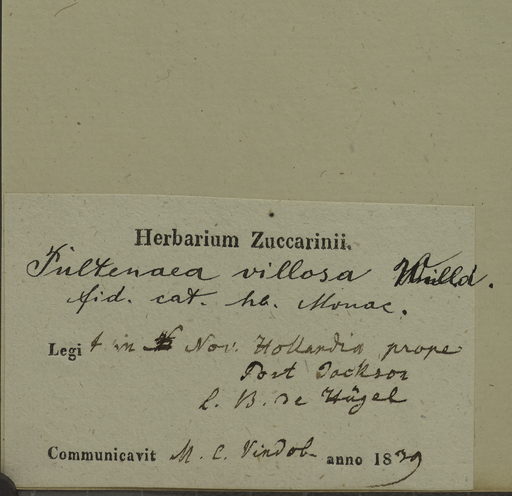 Herbarium Zuccarinii.
Pultenaea villosa Willd.
fid. cat. hb. Monac.
Legit in Nov. Hollandia prope
Port Jackson
C. B. de Hügel
Communicavit M. C. Vindob. anno 1839